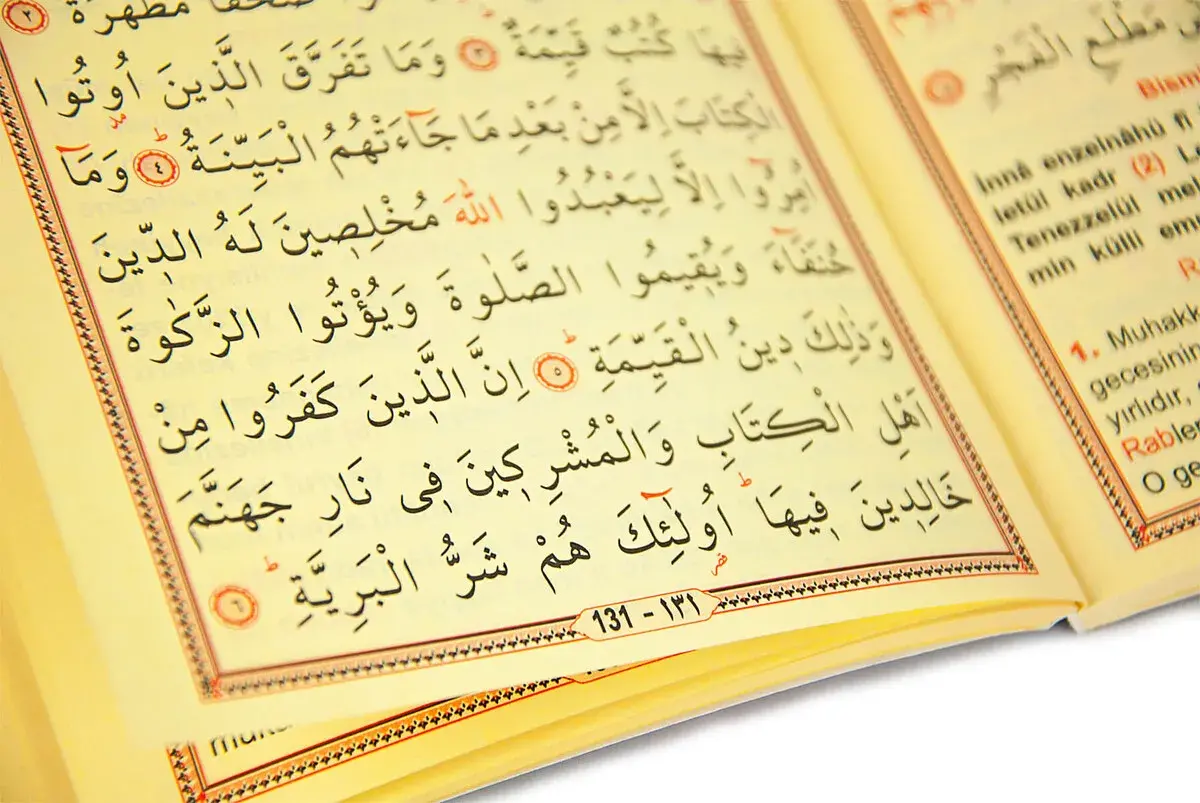 مُطَهَّرَةً ٢
فِيهَا كُتُبٌ قَيِّمَةٌ ٣ وَمَا تَفَرَّقَ الَّذِينَ اُوتُوا
الْكِتَابَ اِلَّا مِنْ بَعْدِ مَا جَٓاءَتْهُمُ الْبَيِّنَةُ ٤ وَمَٓا
اُمِرُٓوا اِلَّا لِيَعْبُدُوا اللهَ مُخْلِصِينَ لَهُ الدِّينَ
حُنَفَٓاءَ وَيُقِيمُوا الصَّلٰوةَ وَيُؤْتُوا الزَّكٰوةَ
وَذٰلِكَ دِينُ الْقَيِّمَةِ ٥ اِنَّ الَّذِينَ كَفَرُوا مِنْ
اَهْلِ الْكِتَابِ وَالْمُشْرِكِينَ فِى نَارِ جَهَنَّمَ
خَالِدِينَ فِيهَا اُولٰٓئِكَ هُمْ شَرُّ الْبَرِيَّةِ ٦
131 - ١٣١
مَطْلَعِ الْفَجْرِ
Bism
İnnâ enzelnâhü fi
letül kadr (2) Le
Tenezzelül mel
min külli em
1. Muhakk
gecesinin
yırlıdır,
Rabler
O ge